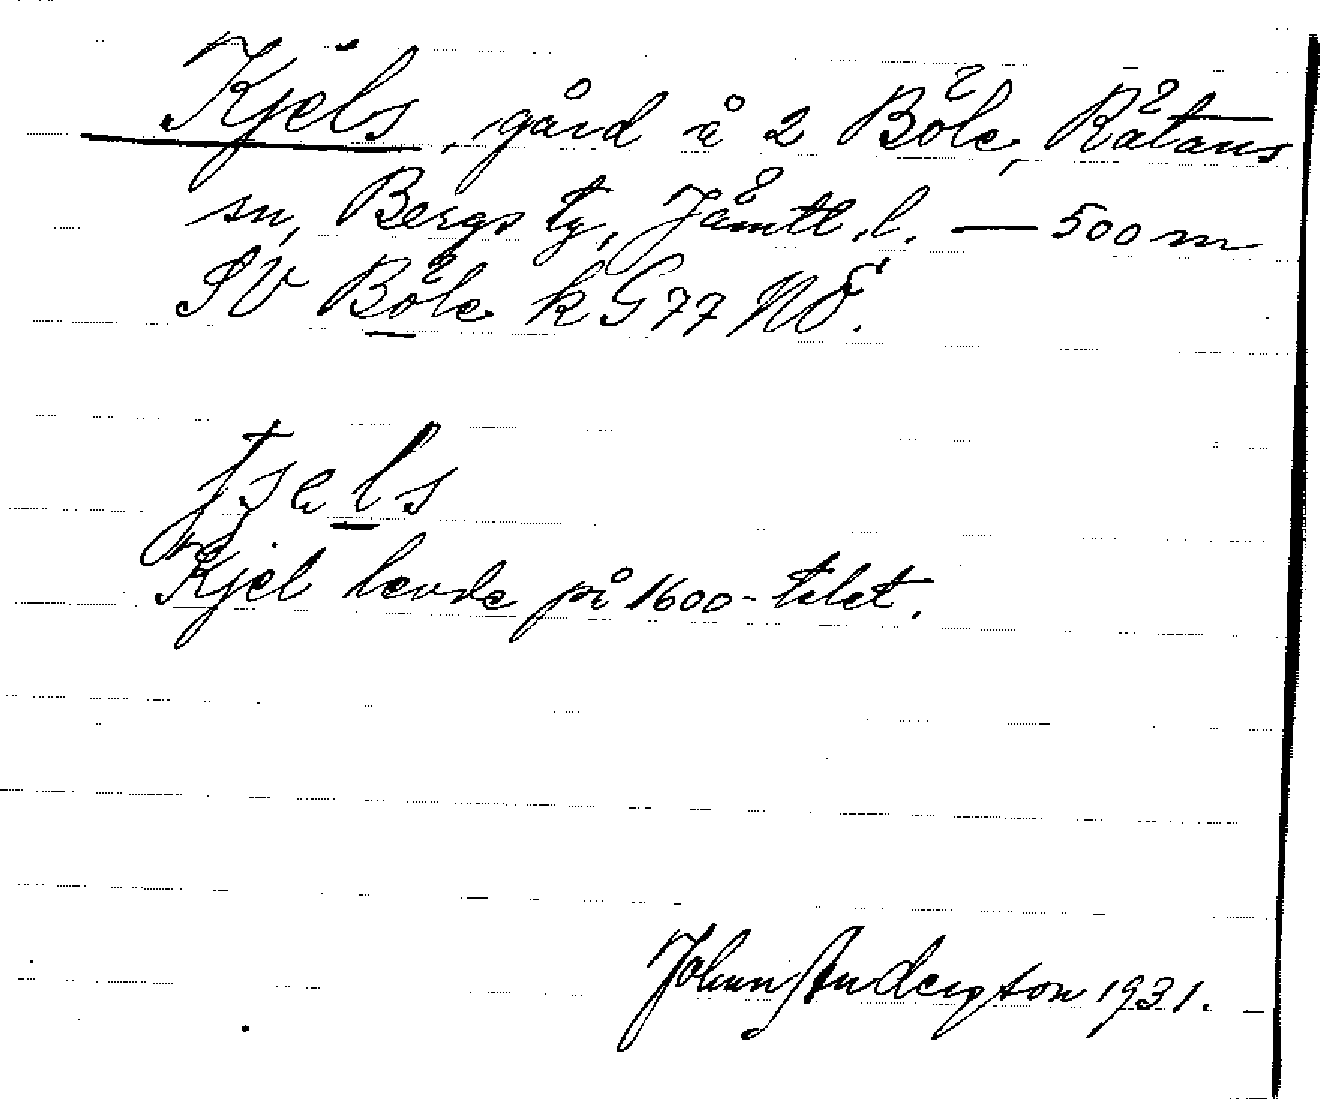 Kjels, gård å 2 Böle, Rätans
sn, Bergs tg, Jämtl. l. — 500 m
SV Böle k G 77 NÖ.
Kjel levde på 1600-talet.
Johan Anderson 1931.